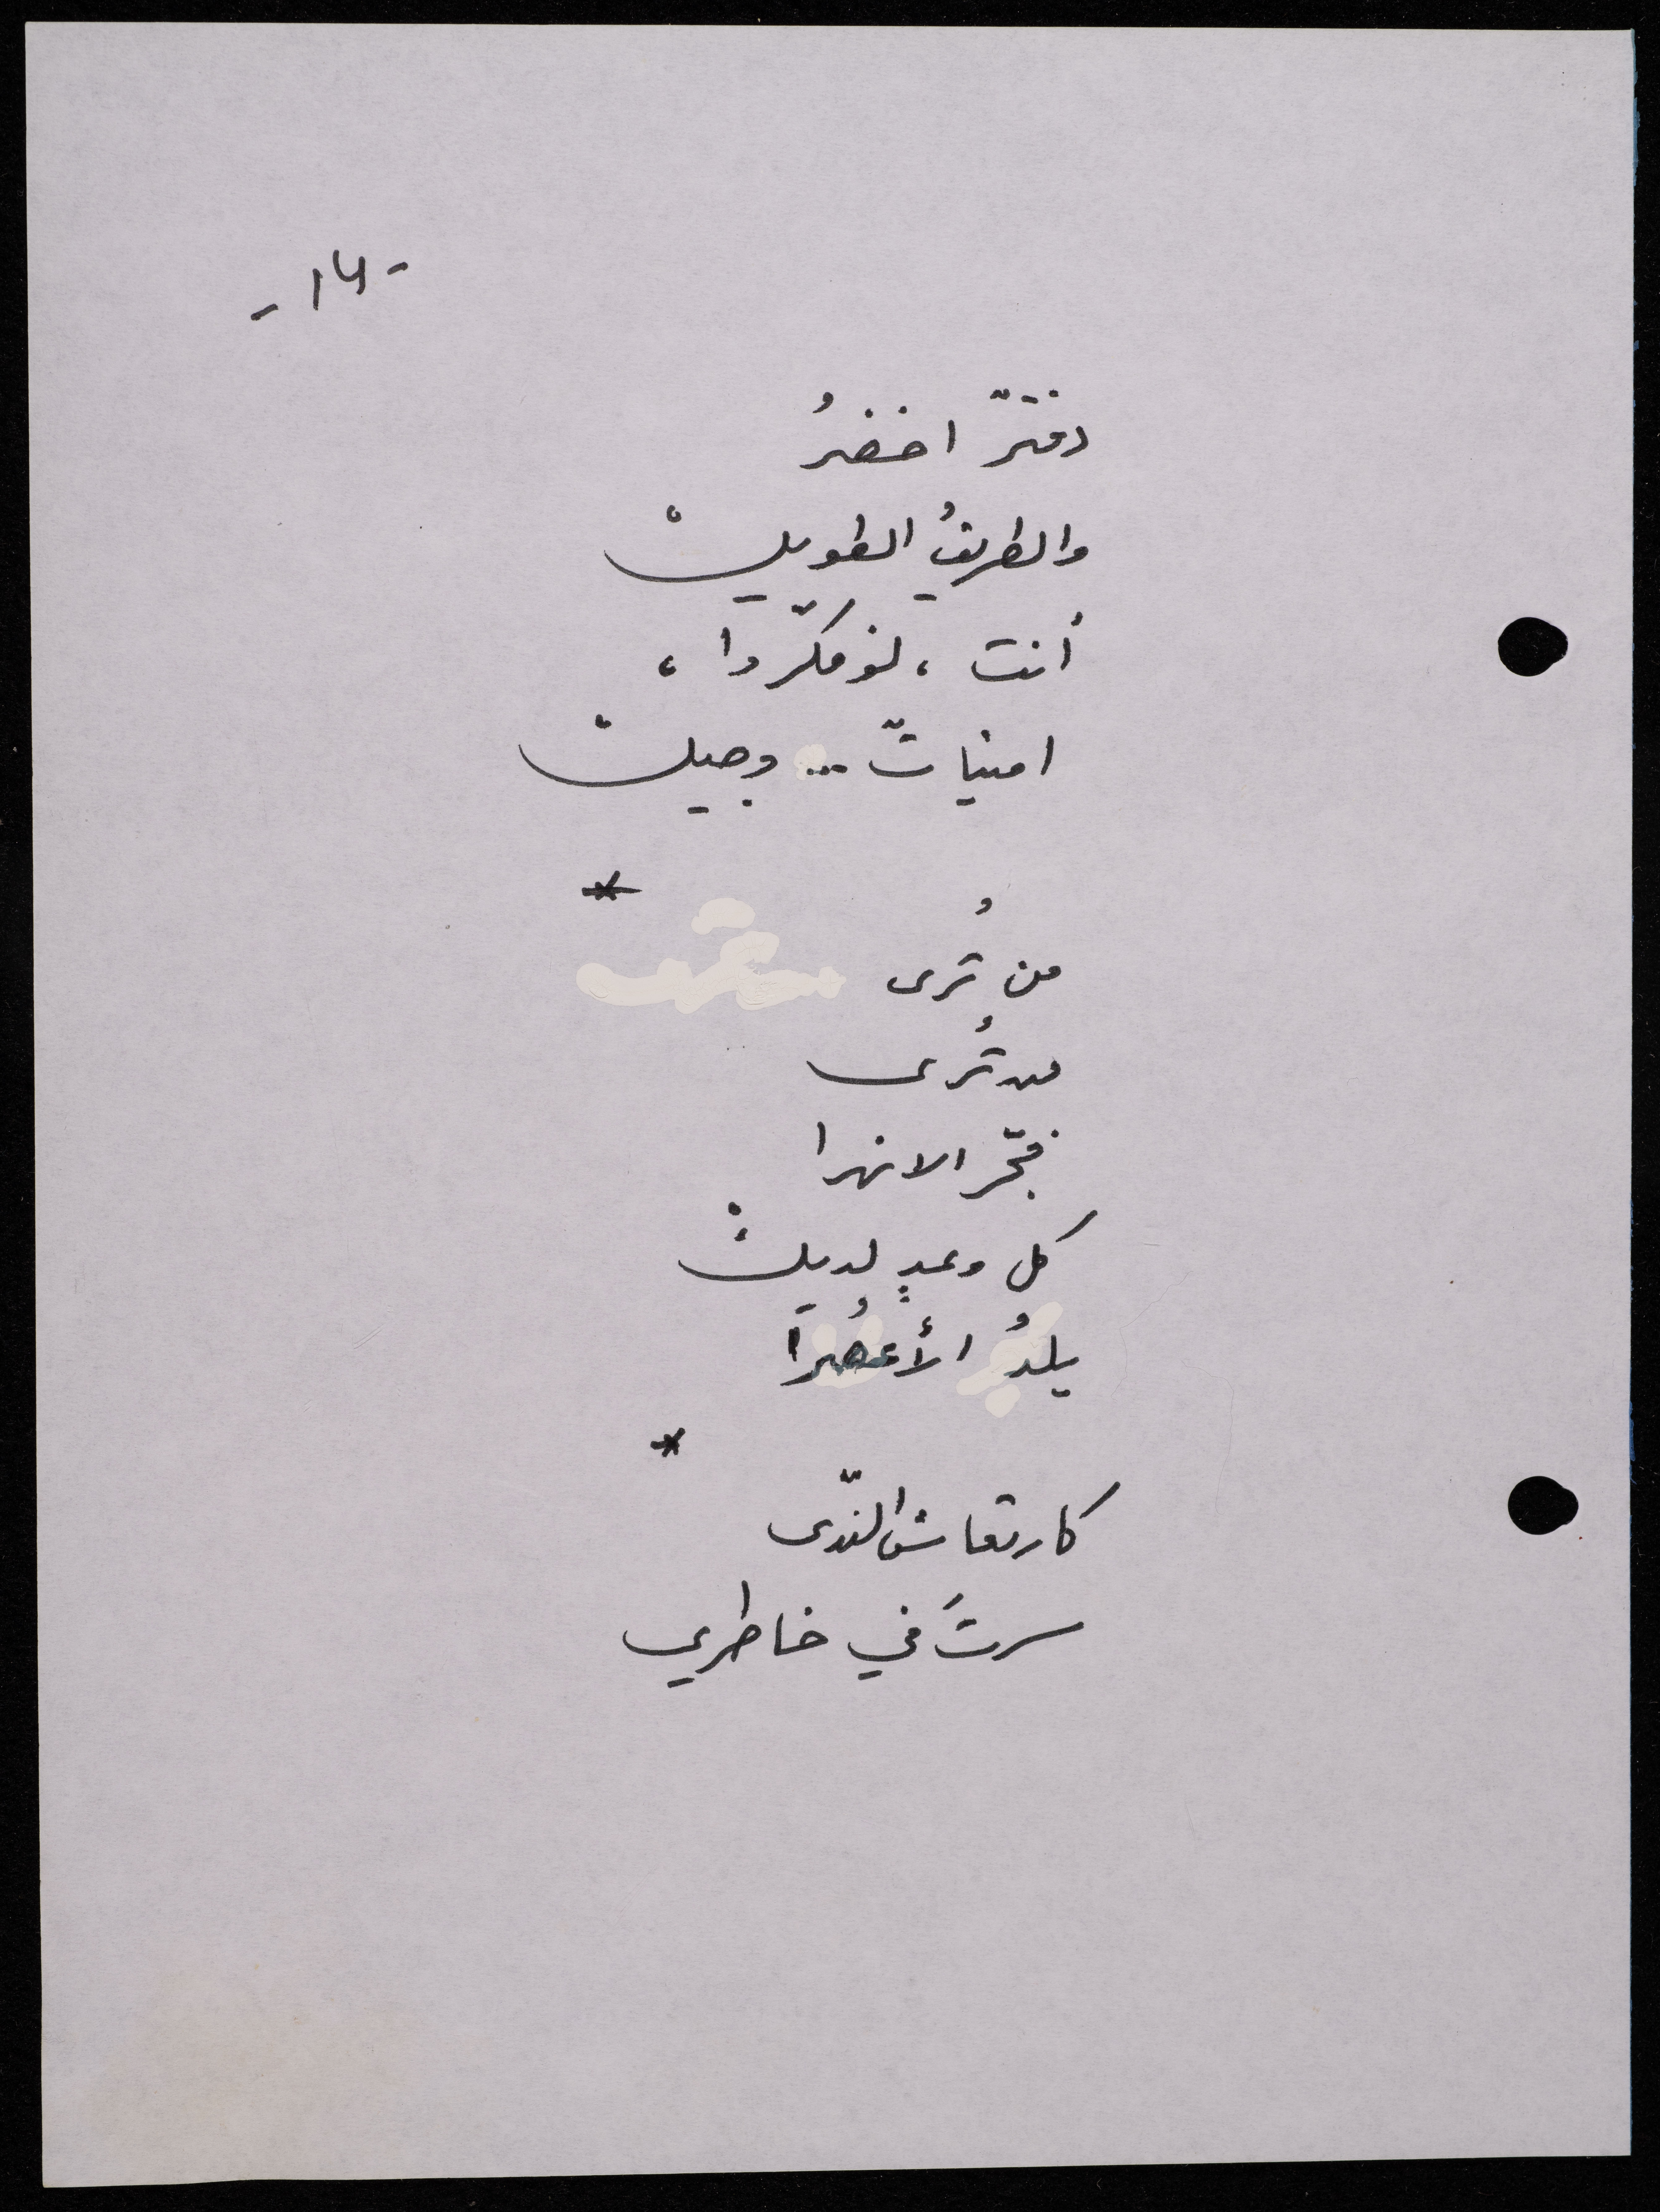 - ١٤ -
دفترٌ اخضرُ
والطريقُ الطويلْ
أنت ، لو فكّروا ،
امنياتٌ ... وجيلْ
*
من تُرى
من تُرى
فجّر الانهرا
كل وعدٍ لديكْ
يلدُ الأعصُرا
*
كارتعاش النّدى
سرتَ في خاطري